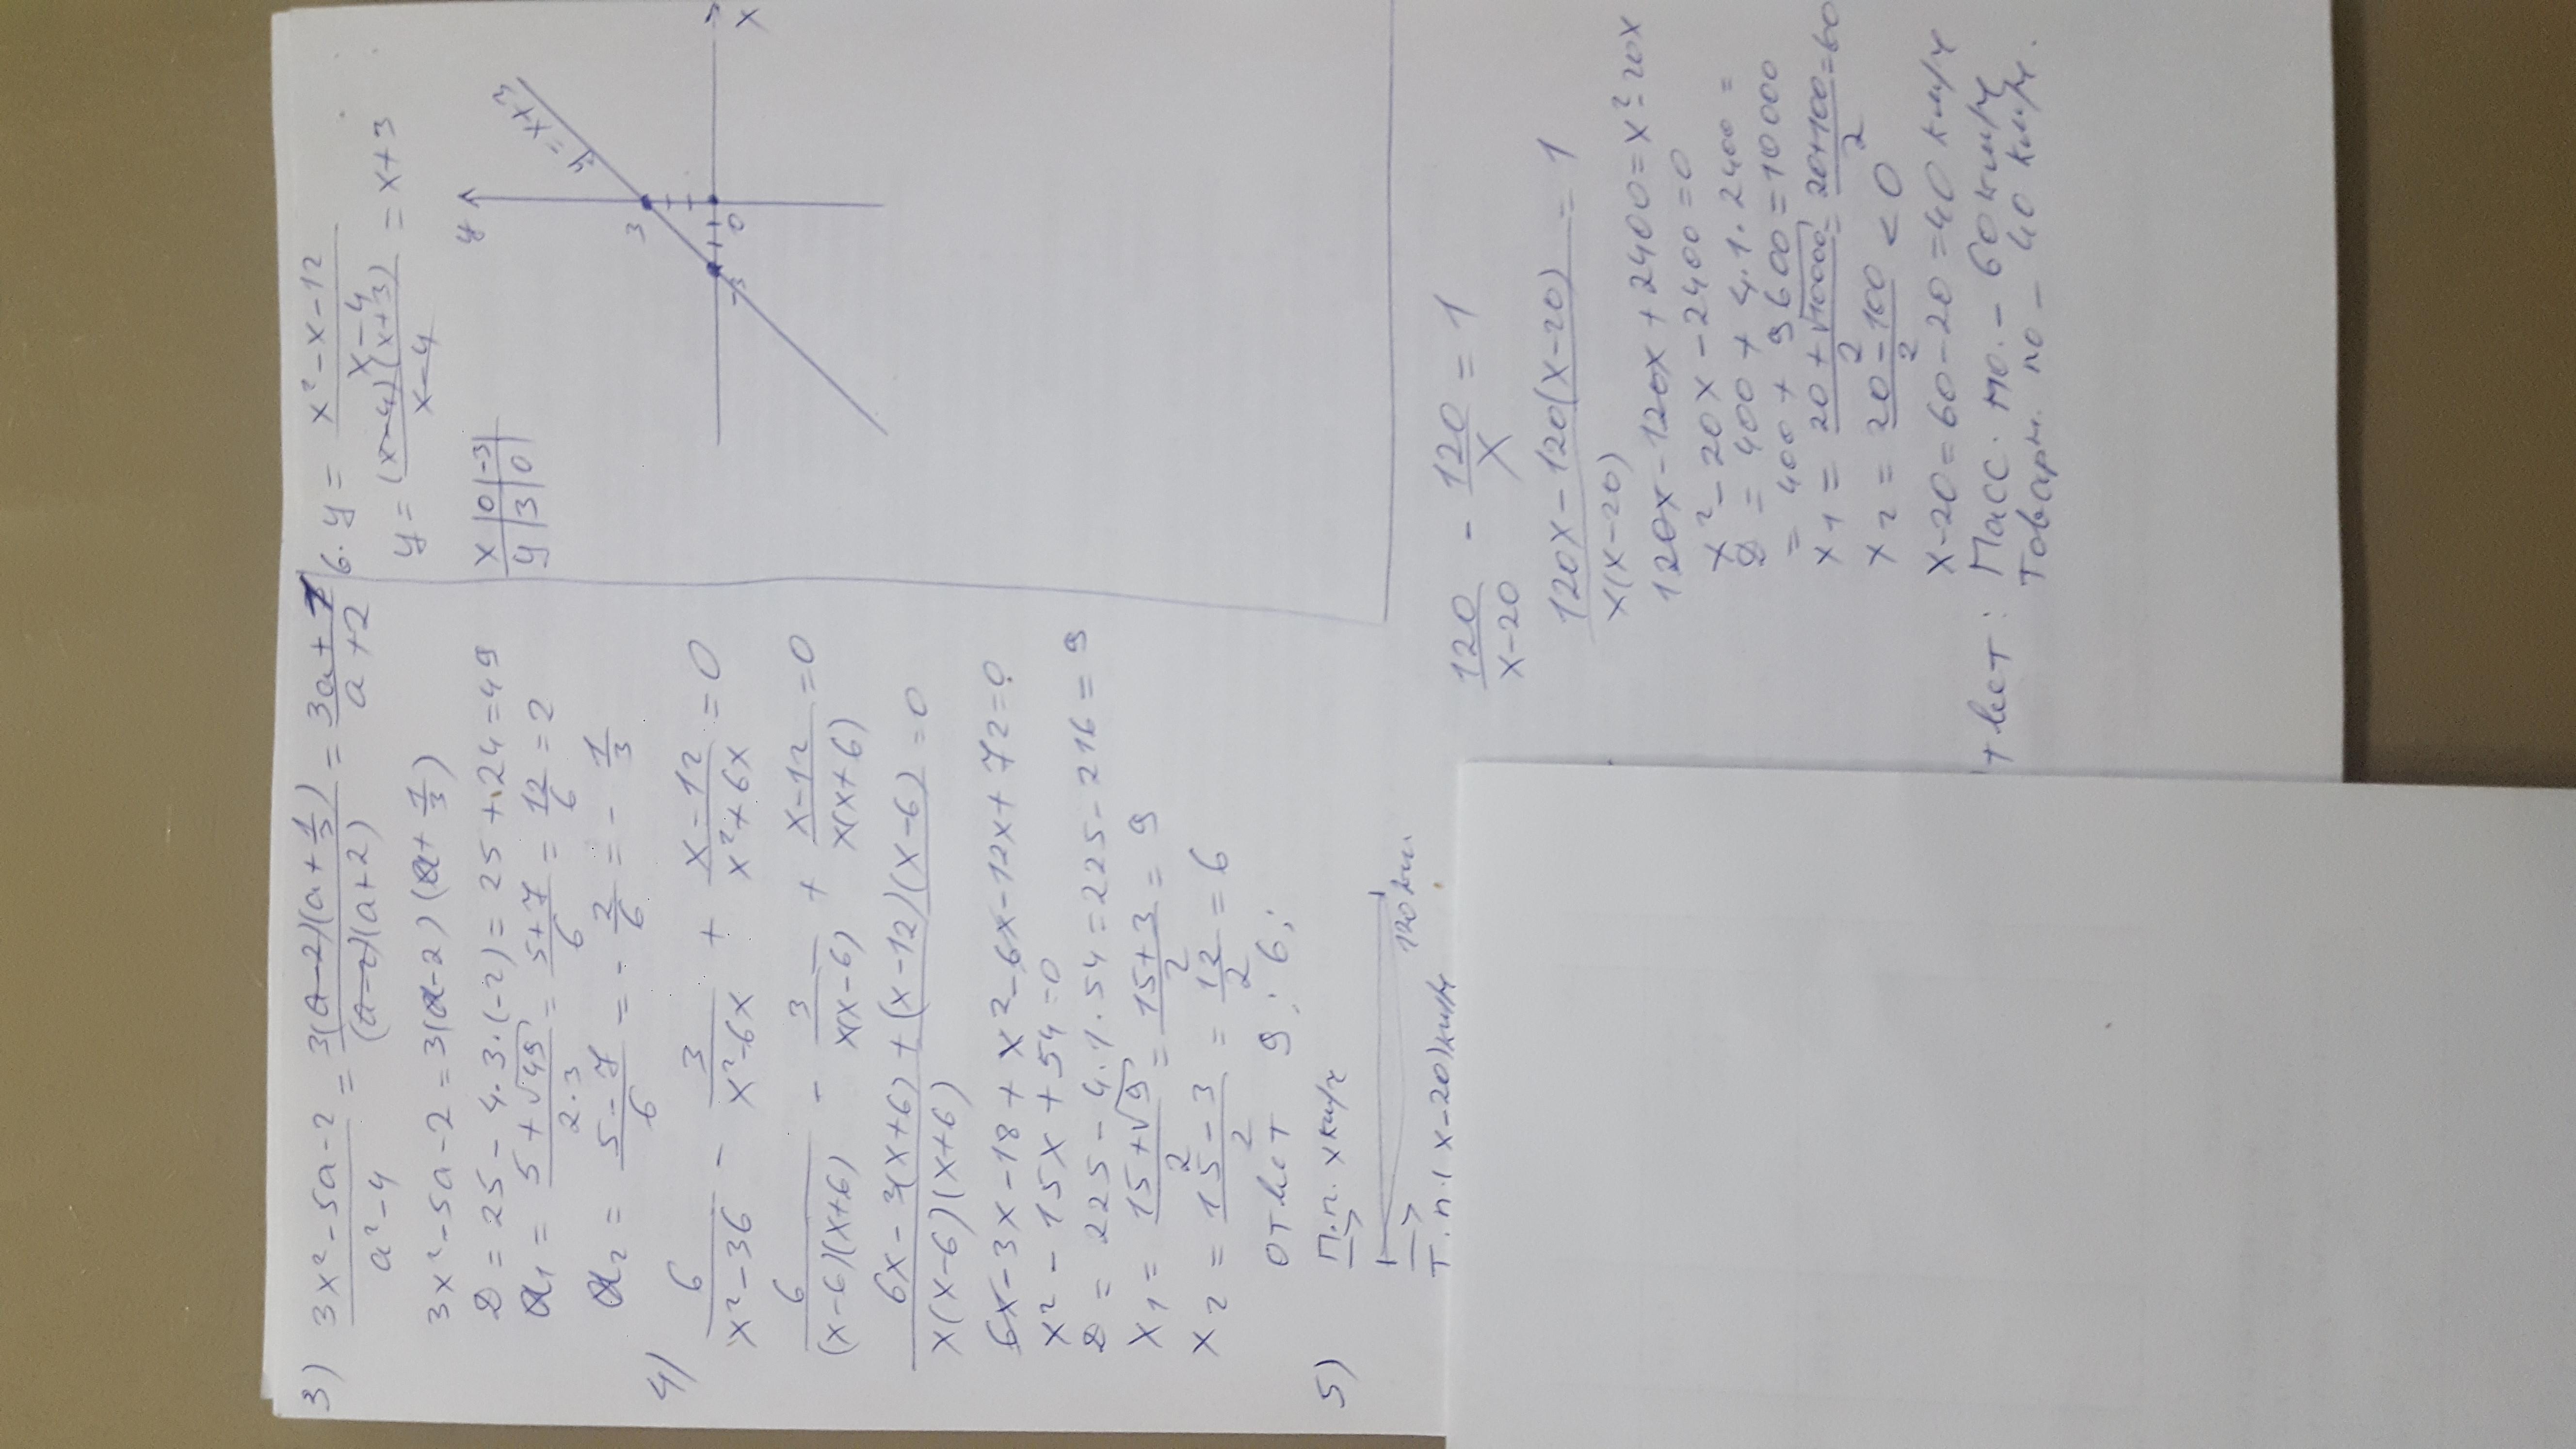 3) (3x² - 5a - 2)/(a² - 4) = (3(a - 2)(a + 1/3))/((a - 2)(a + 2)) = (3a + 1)/(a + 2)
3x² - 5a - 2 = 3(a - 2)(a + 1/3)
D = 25 - 4·3·(-2) = 25 + 24 = 49
a₁ = (5 + √49)/(2·3) = (5 + 7)/6 = 12/6 = 2
a₂ = (5 - 7)/6 = - 2/6 = - 1/3
4) 6/(x² - 36) - 3/(x² - 6x) + (x - 12)/(x² + 6x) = 0
6/((x - 6)(x + 6)) - 3/(x(x - 6)) + (x - 12)/(x(x + 6)) = 0
(6x - 3(x + 6) + (x - 12)(x - 6))/(x(x - 6)(x + 6)) = 0
6x - 3x - 18 + x² - 6x - 12x + 72 = 0
x² - 15x + 54 = 0
D = 225 - 4·1·54 = 225 - 216 = 9
x₁ = (15 + √9)/2 = (15 + 3)/2 = 9
x₂ = (15 - 3)/2 = 12/2 = 6
Ответ 9; 6;
5) П.п. x км/ч
120 км
Т.п. (x - 20) км/ч
6. y = (x² - x - 12)/(x - 4)
y = ((x - 4)(x + 3))/(x - 4) = x + 3
x | 0 | -3
y | 3 | 0
y
3
y = x + 3
-3
0
x
120/(x - 20) - 120/x = 1
(120x - 120(x - 20))/(x(x - 20)) = 1
120x - 120x + 2400 = x² - 20x
x² - 20x - 2400 = 0
D = 400 + 4·1·2400 =
= 400 + 9600 = 10000
x₁ = (20 + √10000)/2 = (20 + 100)/2 = 60
x₂ = (20 - 100)/2 < 0
x - 20 = 60 - 20 = 40 км/ч
твет: Пасс. по. - 60 км/ч
Товарн. по - 40 км/ч.